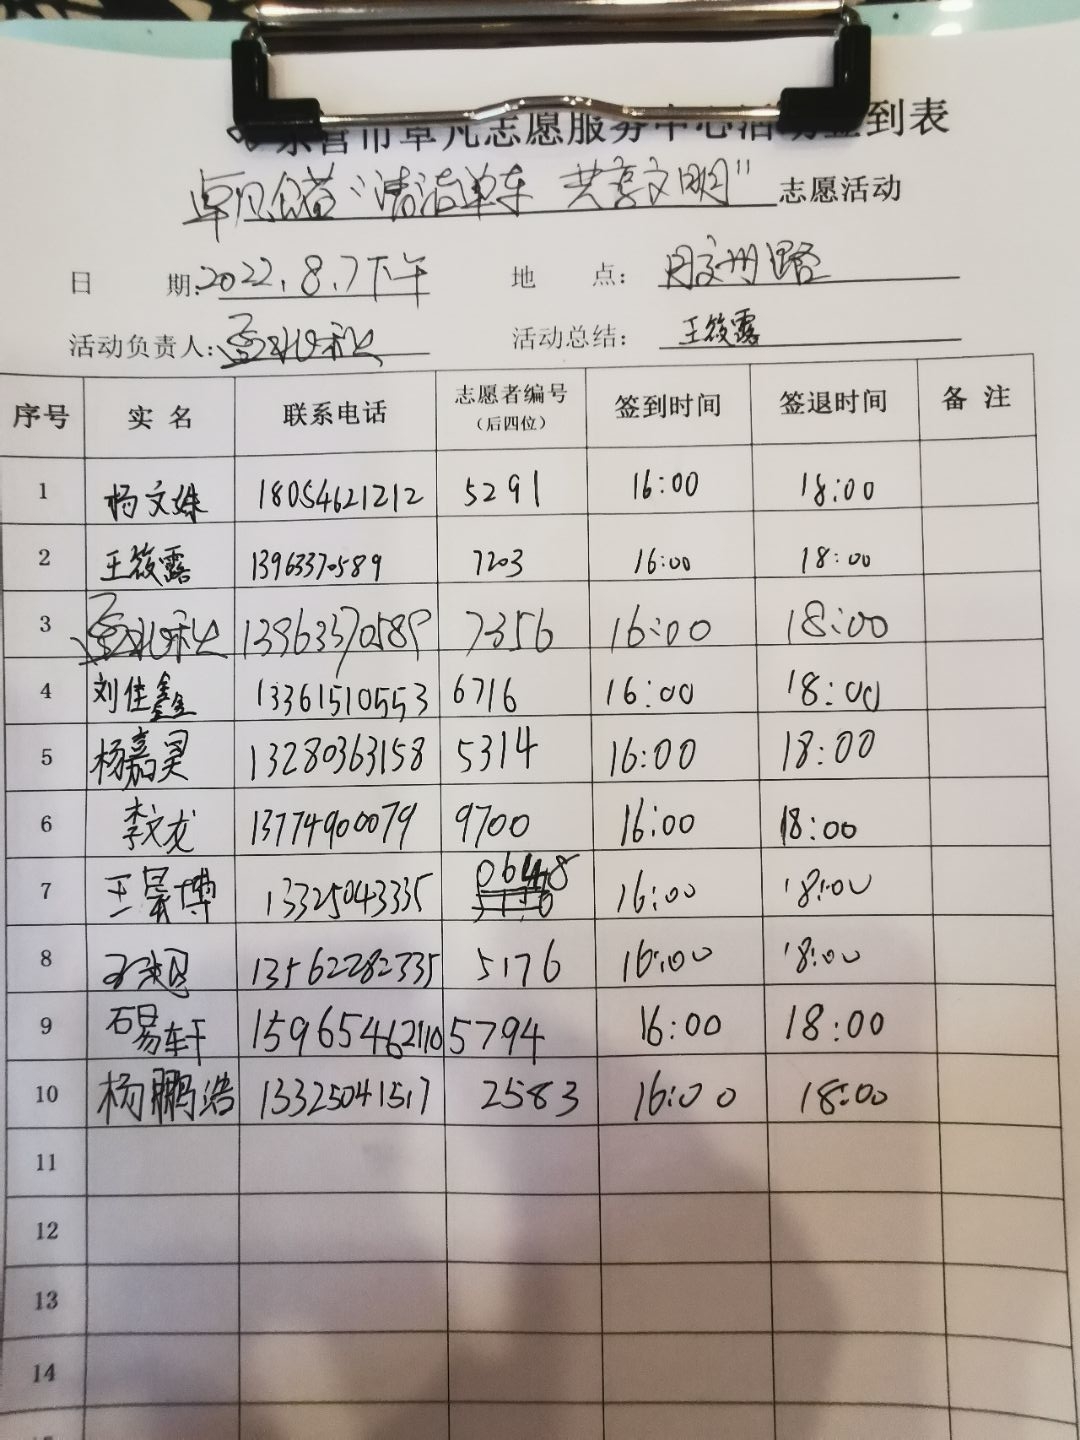 东营市卓凡志愿服务中心活动签到表
"清洁单车 共享文明" 志愿活动
日 期: 2022.8.7下午 地 点: 胶州路
活动负责人: 活动总结: 王筱露
序号 实名 联系电话 志愿者编号(后四位) 签到时间 签退时间 备注
1 杨文姝 18054621212 5291 16:00 18:00
2 王筱露 13963370589 7203 16:00 18:00
3 13963370589 7356 16:00 18:00
4 刘佳鑫 13361510553 6716 16:00 18:00
5 杨嘉昊 13280363158 5314 16:00 18:00
6 李文龙 13774900079 9700 16:00 18:00
7 王景博 13325043335 0648 16:00 18:00
8 13562282335 5176 16:00 18:00
9 石易轩 15965462110 5794 16:00 18:00
10 杨鹏浩 13325041517 2583 16:00 18:00
11
12
13
14